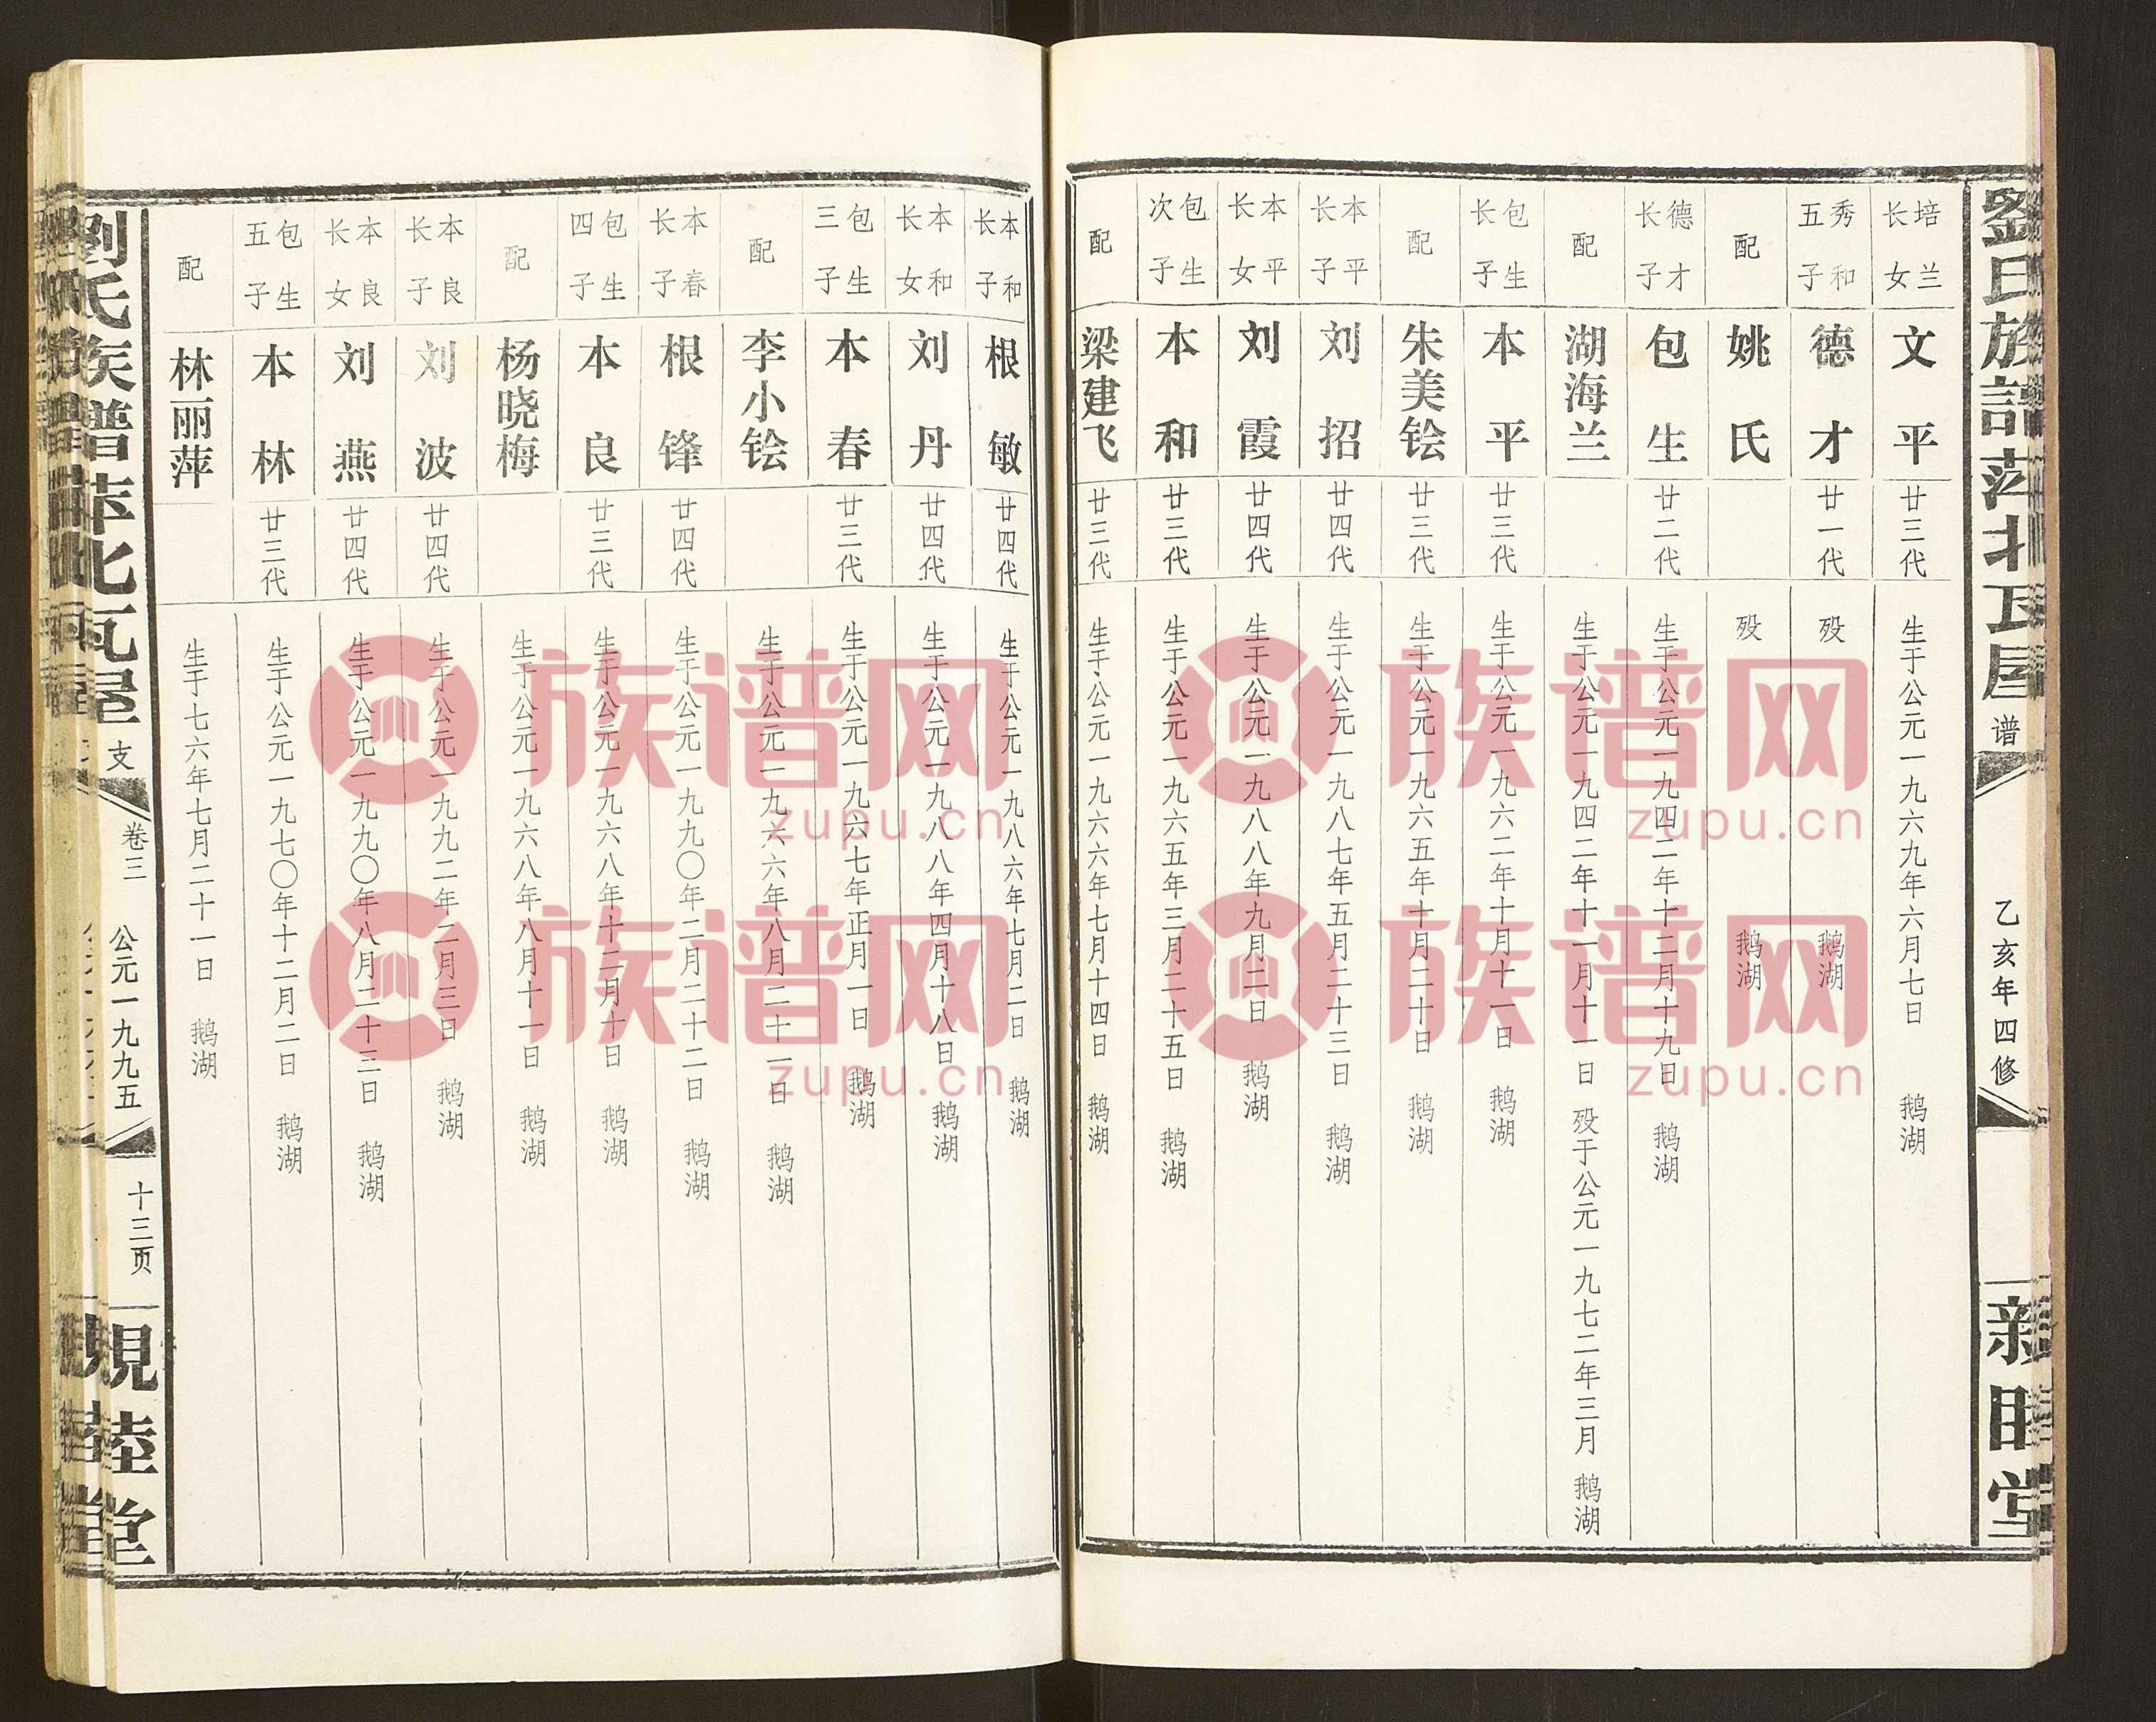 劉氏族譜萍北瓦屋 谱 乙亥年四修 親睦堂
培兰长女 文平 廿三代 生于公元一九六九年六月七日 鹅湖
秀和五子 德才 廿一代 殁 鹅湖
配 姚氏 殁 鹅湖
德才长子 包生 廿二代 生于公元一九四二年十二月十九日 鹅湖
配 湖海兰 生于公元一九四二年十一月十一日 殁于公元一九七二年三月 鹅湖
包生长子 本平 廿三代 生于公元一九六二年十月十一日 鹅湖
配 朱美铨 廿三代 生于公元一九六五年十月二十日 鹅湖
本平长子 刘招 廿四代 生于公元一九八七年五月二十三日 鹅湖
本平长女 刘霞 廿四代 生于公元一九八八年九月二日 鹅湖
包生次子 本和 廿三代 生于公元一九六五年三月二十五日 鹅湖
配 梁建飞 廿三代 生于公元一九六六年七月十四日 鹅湖
本和长子 根敏 廿四代 生于公元一九八六年七月二日 鹅湖
本和长女 刘丹 廿四代 生于公元一九八八年四月十八日 鹅湖
包生三子 本春 廿三代 生于公元一九六七年正月一日 鹅湖
配 李小铨 生于公元一九六六年八月二十一日 鹅湖
本春长子 根锋 廿四代 生于公元一九九〇年二月二十二日 鹅湖
包生四子 本良 廿三代 生于公元一九六八年十二月十日 鹅湖
配 杨晓梅 生于公元一九六八年八月十一日 鹅湖
本良长子 刘波 廿四代 生于公元一九九二年二月三日 鹅湖
本良长女 刘燕 廿四代 生于公元一九九〇年八月二十三日 鹅湖
包生五子 本林 廿三代 生于公元一九七〇年十二月二日 鹅湖
配 林丽萍 生于七六年七月二十一日 鹅湖
劉氏族譜萍北瓦屋 支 卷三 公元一九九五 十三页 親睦堂
族谱网
zupu.cn
族谱网
zupu.cn
族谱网
zupu.cn
族谱网
zupu.cn